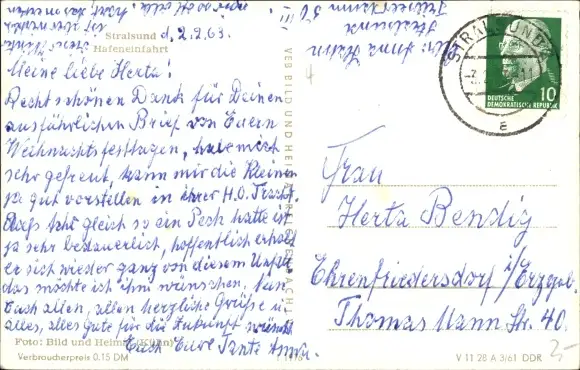 Stralsund d. 2.2.63.
Hafeneinfahrt
Meine liebe Herta!
Recht schönen Dank für Deinen
ausführlichen Brief von Euern
Weihnachtsfesttagen, habe mich
sehr gefreut, kann mir die Kleinen
ja gut vorstellen in ihrer H.O. Tracht.
Daß gleich so ein Pech hatte ist
ja sehr bedauerlich, hoffentlich erholt
er sich wieder ganz von diesem Unfall
das möchte ich ihm wünschen. Nun
Euch allen, allen herzliche Grüße u.
alles, alles Gute für die Zukunft wünscht
Euch Eure Tante Anna.
Foto: Bild und Heimat (Kühn)
Verbraucherpreis 0.15 DM
VEB BILD UND HEIMAT REICHENBACH I. V.
Anna
Stralsund
STRALSUND
a
10
DEUTSCHE
DEMOKRATISCHE REPUBLIK
Frau
Herta Bendig
Ehrenfriedersdorf i/Erzgeb.
Thomas Mann Str. 40.
V 11 28 A 3/61 DDR
2-